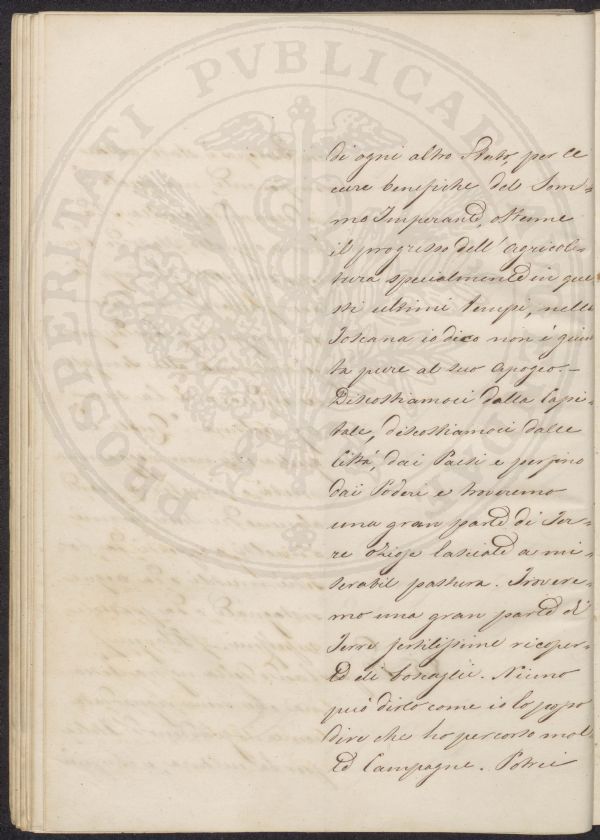 di ogni altro Stato, per le
cure benefiche del Som=
mo Imperante, ottenne
il progresso dell' agricol=
tura specialmente in que
sti ultimi tempi, nella
Toscana io dico non é giun
ta pure al suo apogeo. –
Discostiamoci dalla Capi=
tale, discostiamoci dalle
Città, dai Paesi e perfino
dai Poderi e troveremo
una gran parte di Ter=
re oziose lasciate a mi=
serabil pastura. Trovere=
mo una gran parte di
Terre fertilissime ricoper=
te di boscaglie. Niuno
può dirlo come io lo posso
dire che ho percorso mol
te Campagne. Potrei
PROSPERITATI PVBLICAE